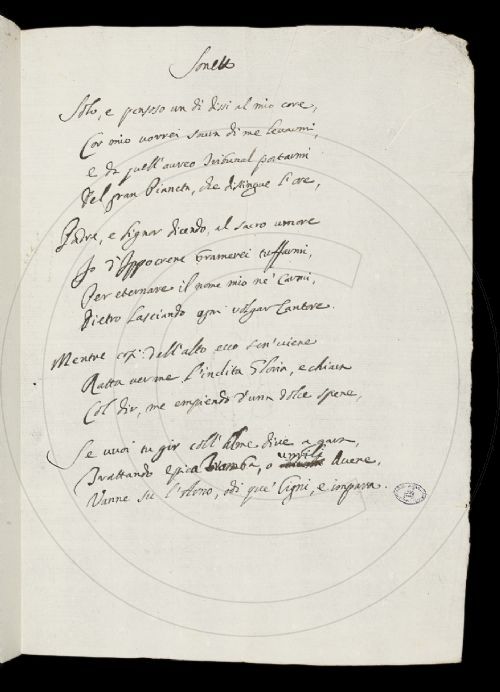 Sonetto
Solo, e pensoso un dì dissi al mio core,
Cor mio vorrei sovra di me levarmi,
e da quell'aureo Tribunal portarmi
Del gran Pianeta, che distingue l'ore,
Padre, e Signor dicendo, al sacro umore
Io d'Ippocrene bramerei tuffarmi,
Per eternare il nome mio ne' Carmi,
Dietro lasciando ogni volgar Cantore.
Mentre così: dall'alto ecco sen' viene
Ratta ver me l'inclita Gloria, e chiara
Col dir, me empiendo d'una dolce spene,
Se vuoi tu gir coll'alme dive a gara,
Trattando epica tromba, o umili Avene,
Vanne su l'Arno, odi que' Cigni, e impara.